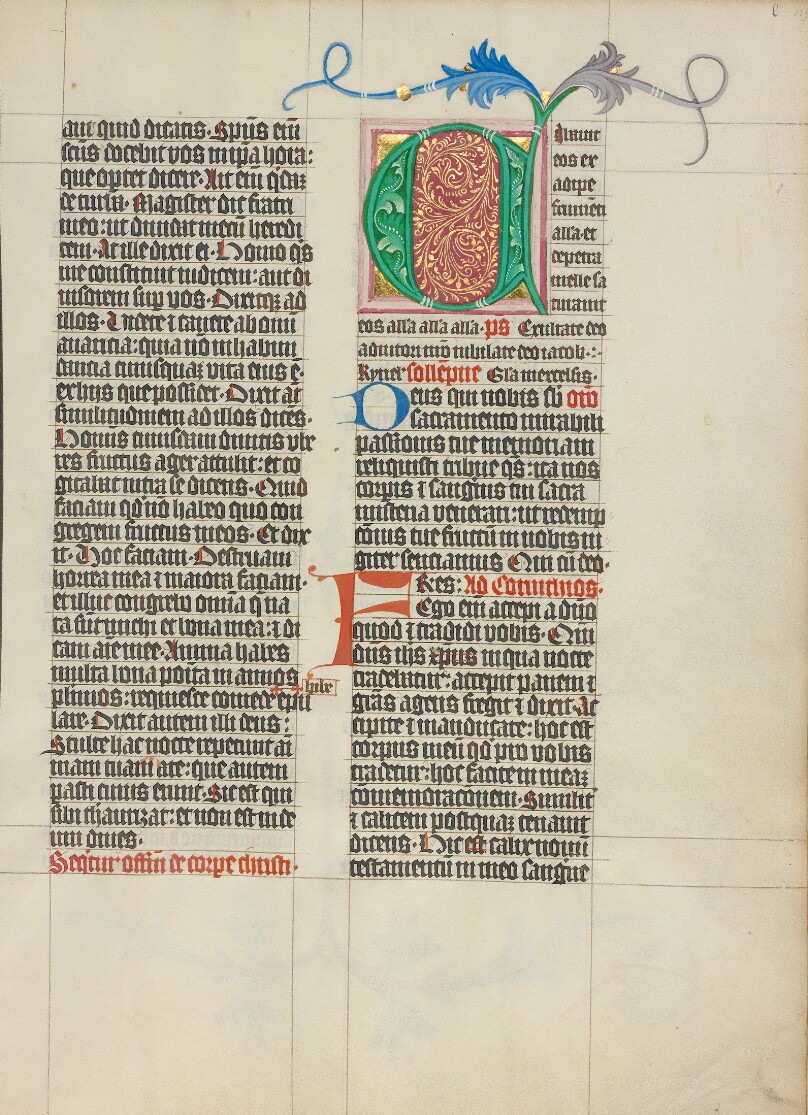 aut quid dicatis. Sp̄us em̄
sc̄us docebit vos in ip̄a hora:
que oportet dicere. Ait em̄ q̄daꝫ
de turba. Magister dic fratri
meo: ut dividat mecū heredi
tem. At ille dixit ei. Homo q̄s
me constituit iudicem: aut di
visorem sup vos. Dixitqꝫ ad
illos. Videte ⁊ cavete ab omni
avaricia: quia nō in habun
dancia cuiusquaꝫ vita eius ē.
ex hijs que possidet. Dixit aūt
similitudinem ad illos dicēs.
Hominis cuiusdam divitis ube
res fructus ager attulit: et co
gitabat intra se dicens. Quid
faciam qd nō habeo quo con
gregem fructus meos. Et dix
it. Hoc faciam. Destruam
horrea mea ⁊ maiora faciam.
et illuc congrebo omīa q̄ na
ta sūt michi et bona mea: ⁊ di
cam aīe mee. Anima habes
multa bona poīta in annos
plimos: requiesce comede epu
bibe
lare. Dixit autem illi deus:
Stulte hac nocte repetunt aī
mam tuam a te: que autem
pasti cuius erunt. Sic est qui
sibi thaurizat: et non est in de
um dives.
Seq̄tur offm̄ de corpe christi.
Cibavit
eos ex
adipe
frumeti
alla. et
de petra
melle sa
turavit
eos alla alla alla. ps̄ Exultate deo
adiutori nr̄o iubilate deo iacob.
Kyriel sollēpne Gl̄a in excelsis.
Deus qui nobis sb̄ or̄o
sacramento mirabili
passionis tue memoriam
reliquisti tribue q̄s: ita nos
corpis ⁊ sanguīs tui sacra
misteria venerari: ut redemp
cōnis tue fructū in nobis iu
giter senciamus Qui cū deo.
Fres: Ad Corinthios.
Ego em̄ accepi a dn̄o
quod ⁊ tradidi vobis. Qm̄
dn̄s ih̄s xp̄us in qua nocte
tradebatur: accepit panem ⁊
grās agens fregit ⁊ dixit. Ac
cipite ⁊ manducate: hoc est
corpus meū qd pro vobis
tradetur: hoc facite in meaꝫ
commemoracōnem. Similit̄
⁊ calicem postquaꝫ cenavit
dicens. Hic est calix novū
testamentū in meo sangue